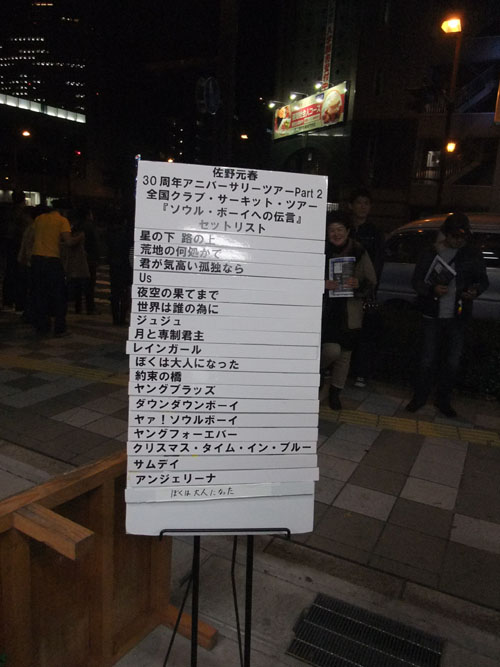 佐野元春
30周年アニバーサリーツアーPart 2
全国クラブ・サーキット・ツアー
『ソウル・ボーイへの伝言』
セットリスト
星の下 路の上
荒地の何処かで
君が気高い孤独なら
Us
夜空の果てまで
世界は誰の為に
ジュジュ
月と専制君主
レインガール
ぼくは大人になった
約束の橋
ヤングブラッズ
ダウンダウンボーイ
ヤァ！ソウルボーイ
ヤングフォーエバー
クリスマス・タイム・イン・ブルー
サムデイ
アンジェリーナ
ぼくは大人になった